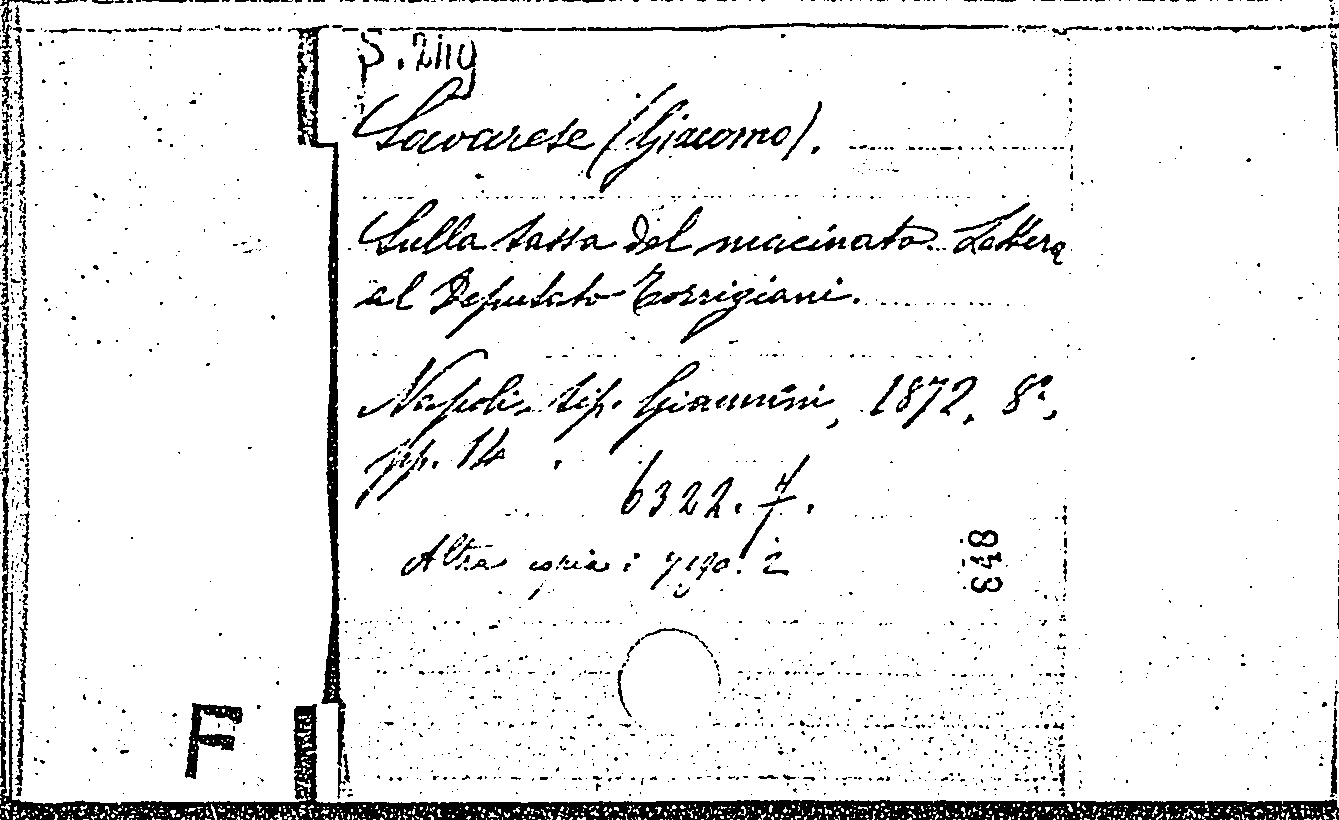 S. 2119
Savarese (Giacomo).
Sulla tassa del macinato. Lettera
al Deputato Torrigiani.
Napoli, tip. Giannini, 1872, 8º,
pp. 14.
6322.
Altra copia:
848
F